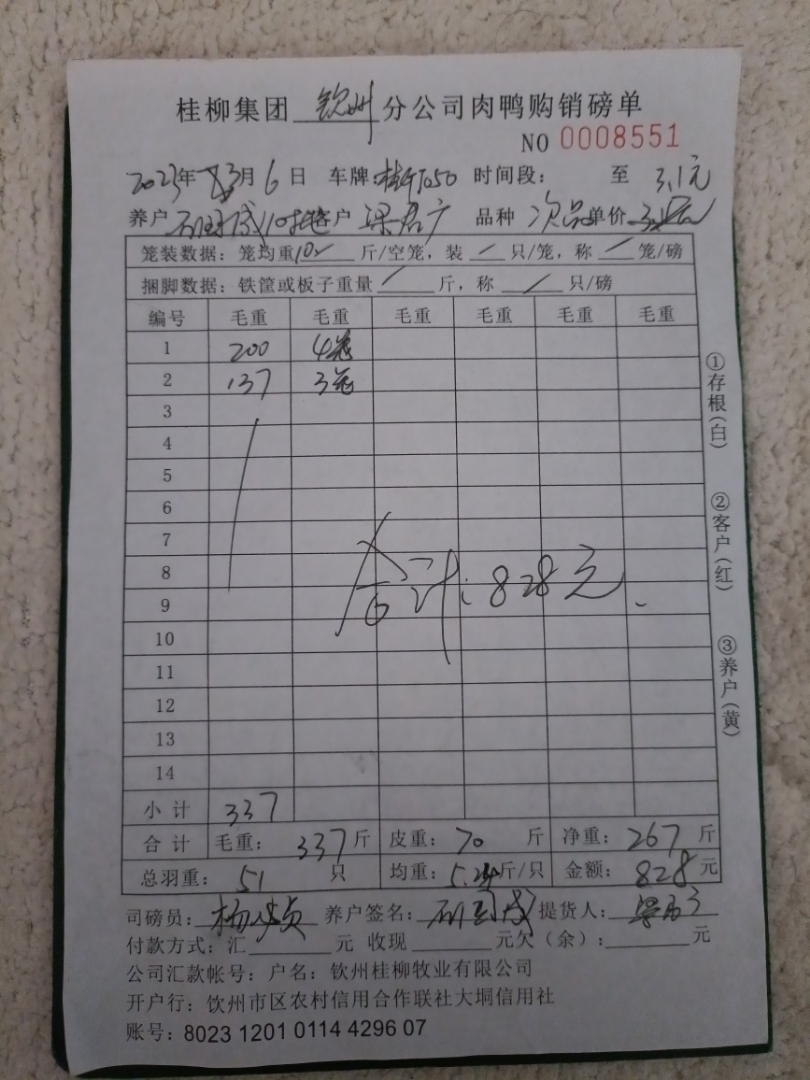 桂柳集团 钦州 分公司肉鸭购销磅单
NO 0008551
2023年 3月 6日 车牌: 时间段: 至 3.1元
养户 客户 梁 广 品种 次品 单价
笼装数据: 笼均重10 斤/空笼, 装 / 只/笼, 称 / 笼/磅
捆脚数据: 铁筐或板子重量 / 斤, 称 / 只/磅
编号 毛重 毛重 毛重 毛重 毛重 毛重
1 200 4笼
2 137 3笼
3
4
5
6
7
8 合计: 828元
9
10
11
12
13
14
小计 337
合计 毛重: 337斤 皮重: 70 斤 净重: 267斤
总羽重: 51 只 均重: 5.24斤/只 金额: 828元
司磅员: 杨 贞 养户签名: 提货人:
付款方式: 汇 元 收现 元欠(余): 元
公司汇款帐号: 户名: 钦州桂柳牧业有限公司
开户行: 钦州市区农村信用合作联社大垌信用社
账号: 8023 1201 0114 4296 07
①存根(白)
②客户(红)
③养户(黄)